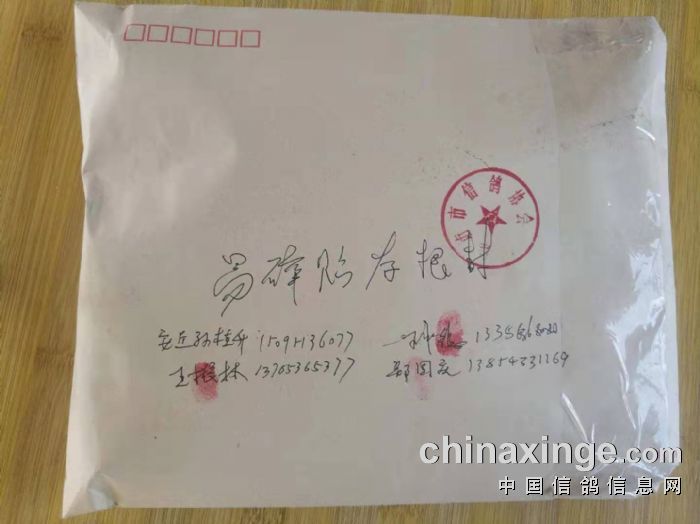 市信鸽协会
易碎贴存根封
安丘孙桂升 15092136077
王振林 13705365377 郭国庆 13854231169
chinaxinge.com
中国信鸽信息网